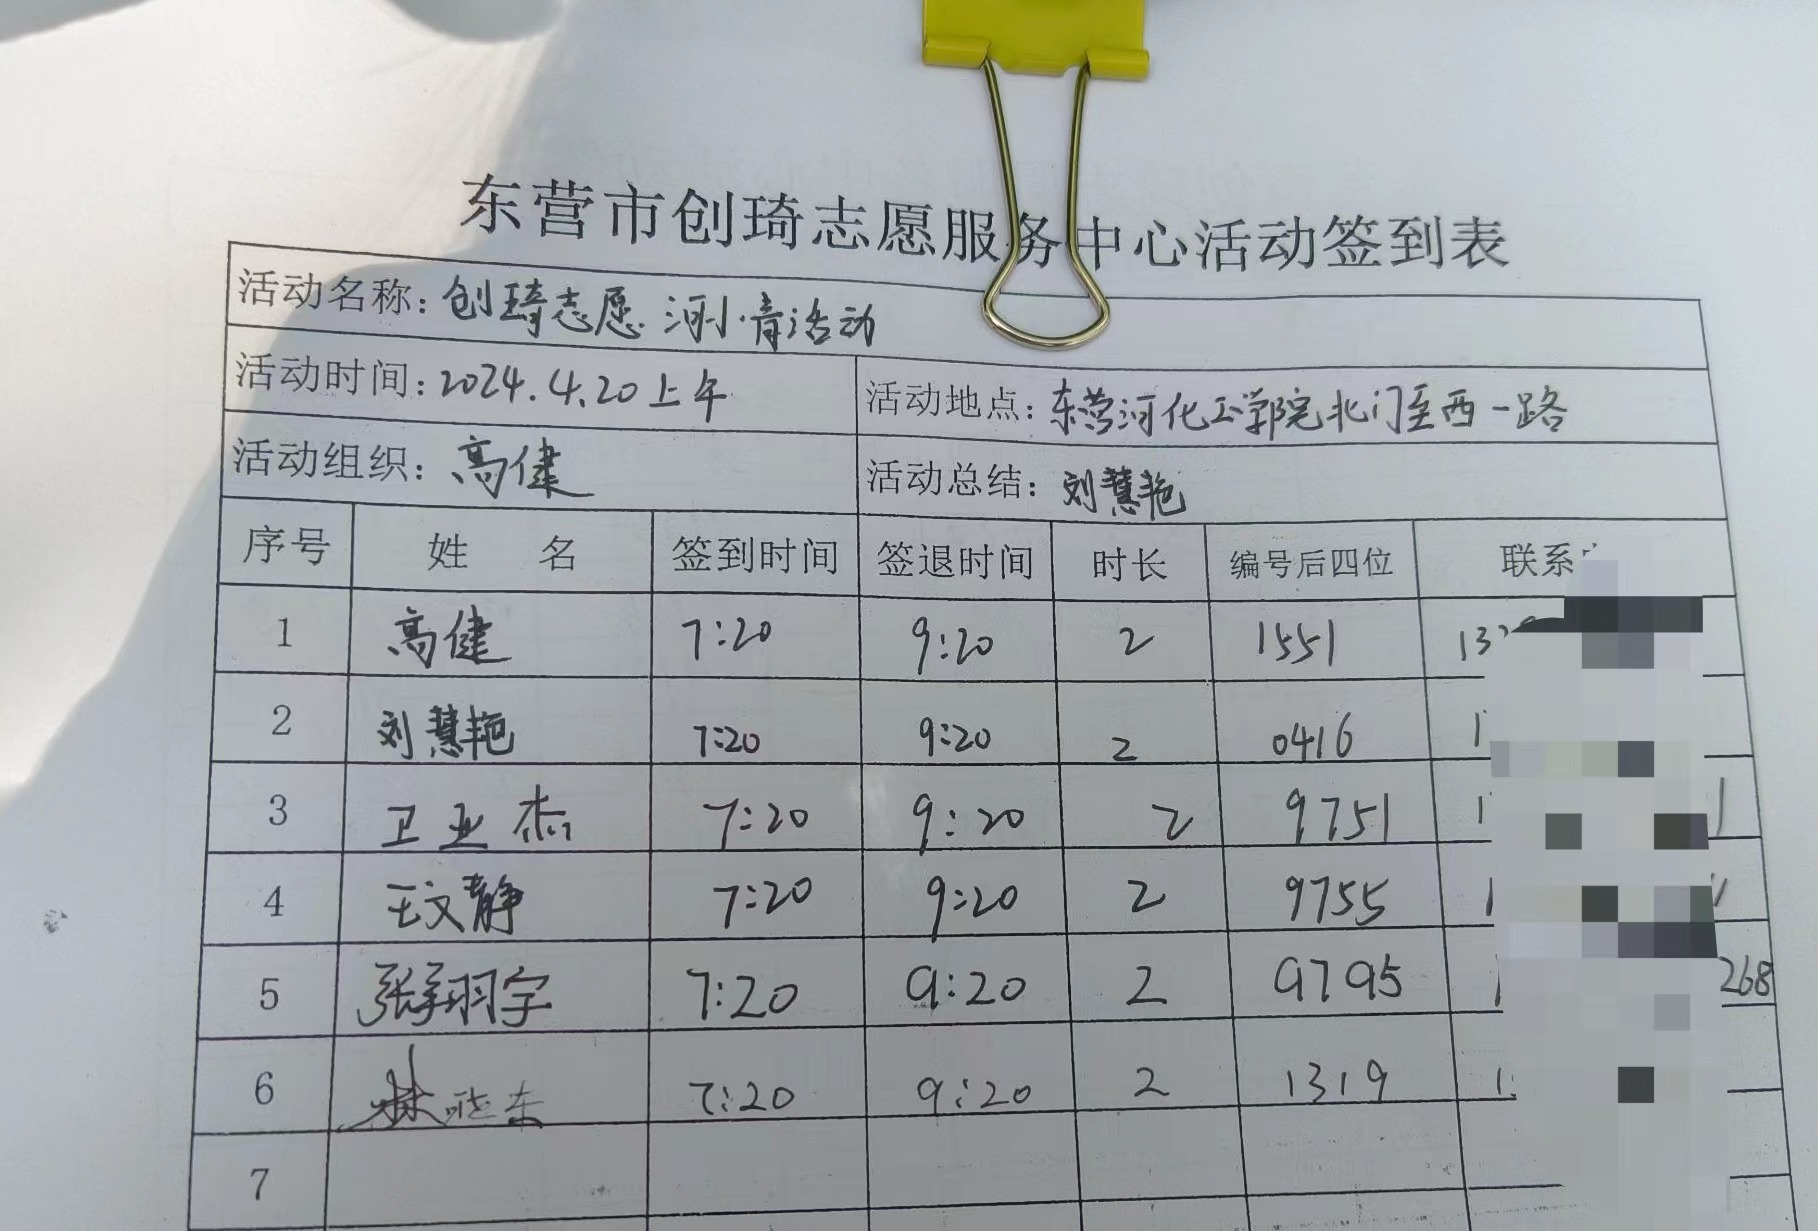 东营市创琦志愿服务中心活动签到表
活动名称：创琦志愿 河小青活动
活动时间：2024.4.20上午 活动地点：东营河化工学院北门至西一路
活动组织：高健 活动总结：刘慧艳
序号 姓名 签到时间 签退时间 时长 编号后四位 联系
1 高健 7:20 9:20 2 1551 13
2 刘慧艳 7:20 9:20 2 0416 1
3 卫亚杰 7:20 9:20 2 9751 1 1
4 王文静 7:20 9:20 2 9755 1
5 张翔宇 7:20 9:20 2 9795 1 268
6 林晓东 7:20 9:20 2 1319 1
7